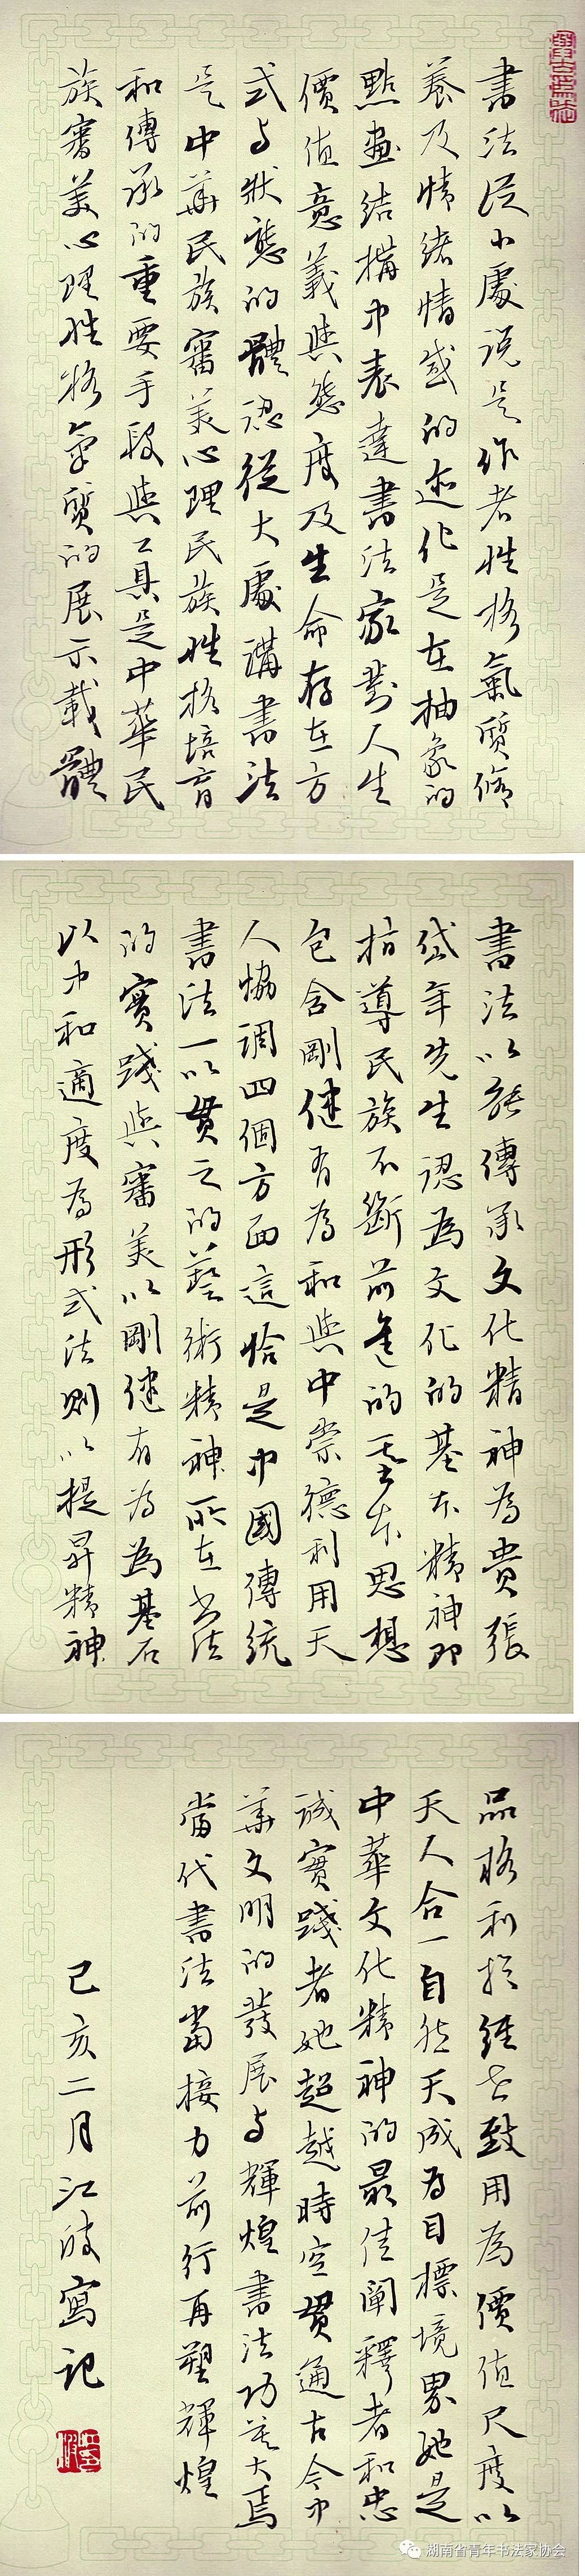 書法從小處説是作者性格氣質脩
養及情緒情感的迹化是在抽象的
點畫結構中表達書法家對人生
價值意義與態度及生命存在方
式与狀態的體認從大處講書法
是中華民族審美心理民族性格培育
和傳承的重要手段與工具是中華民
族審美心理性格氣質的展示載體
書法以能傳承文化精神為貴張
岱年先生認為文化的基本精神即
指導民族不斷前進的基本思想
包含剛健有為和與中崇德利用天
人協調四個方面這恰是中國傳統
書法一以貫之的藝術精神所在書法
的實踐與審美以剛健有為為基石
以中和適度為形式法則以提昇精神
品格利於經世致用為價值尺度以
天人合一自然天成為目標境界她是
中華文化精神的最佳闡釋者和忠
誠實踐者她超越時空貫通古今中
華文明的發展与輝煌書法功莫大焉
當代書法當接力前行再塑輝煌
己亥二月江波寫記
湖南省青年书法家协会